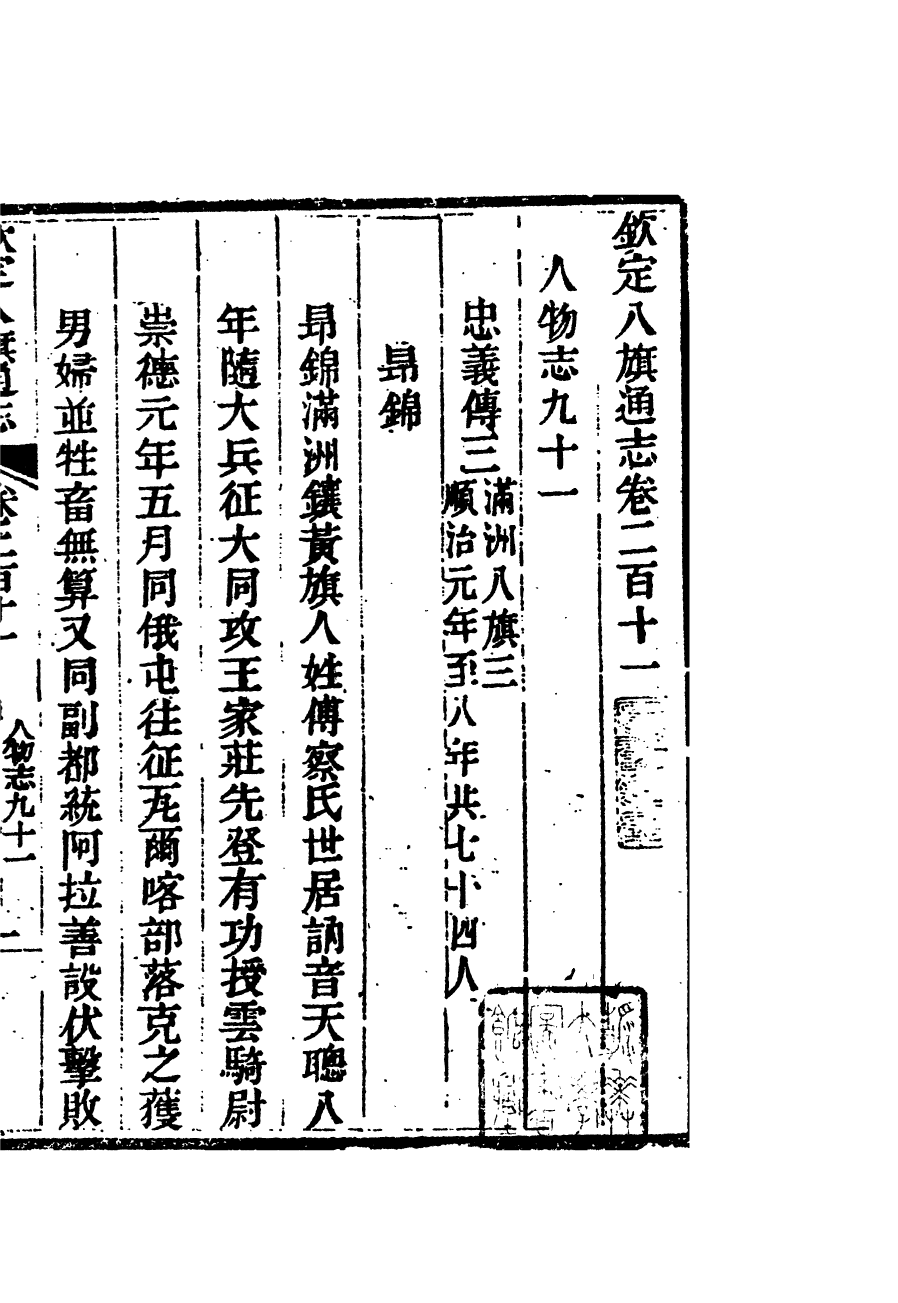 欽定八旗通志卷二百十一
人物志九十一
忠義傳三 滿洲八旗三
順治元年至八年共七十四人
昻錦
昻錦滿洲鑲黃旗人姓傅察氏世居訥音天聰八
年隨大兵征大同攻王家莊先登有功授雲騎尉
崇德元年五月同俄屯往征瓦爾喀部落克之獲
男婦並牲畜無算又同副都統阿拉善設伏擊敗
欽定八旗通志 卷二百十一 人物志九十一 一